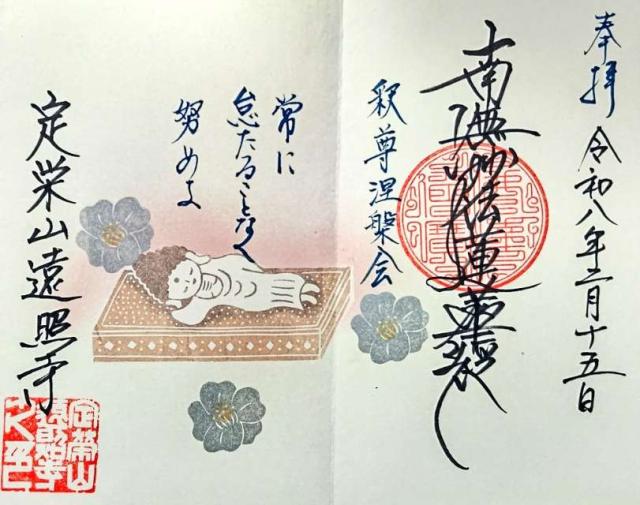 奉拝
令和八年二月十五日
南無妙法蓮華経
釈尊涅槃会
常に
怠たることなく
努めよ
定栄山遠照寺